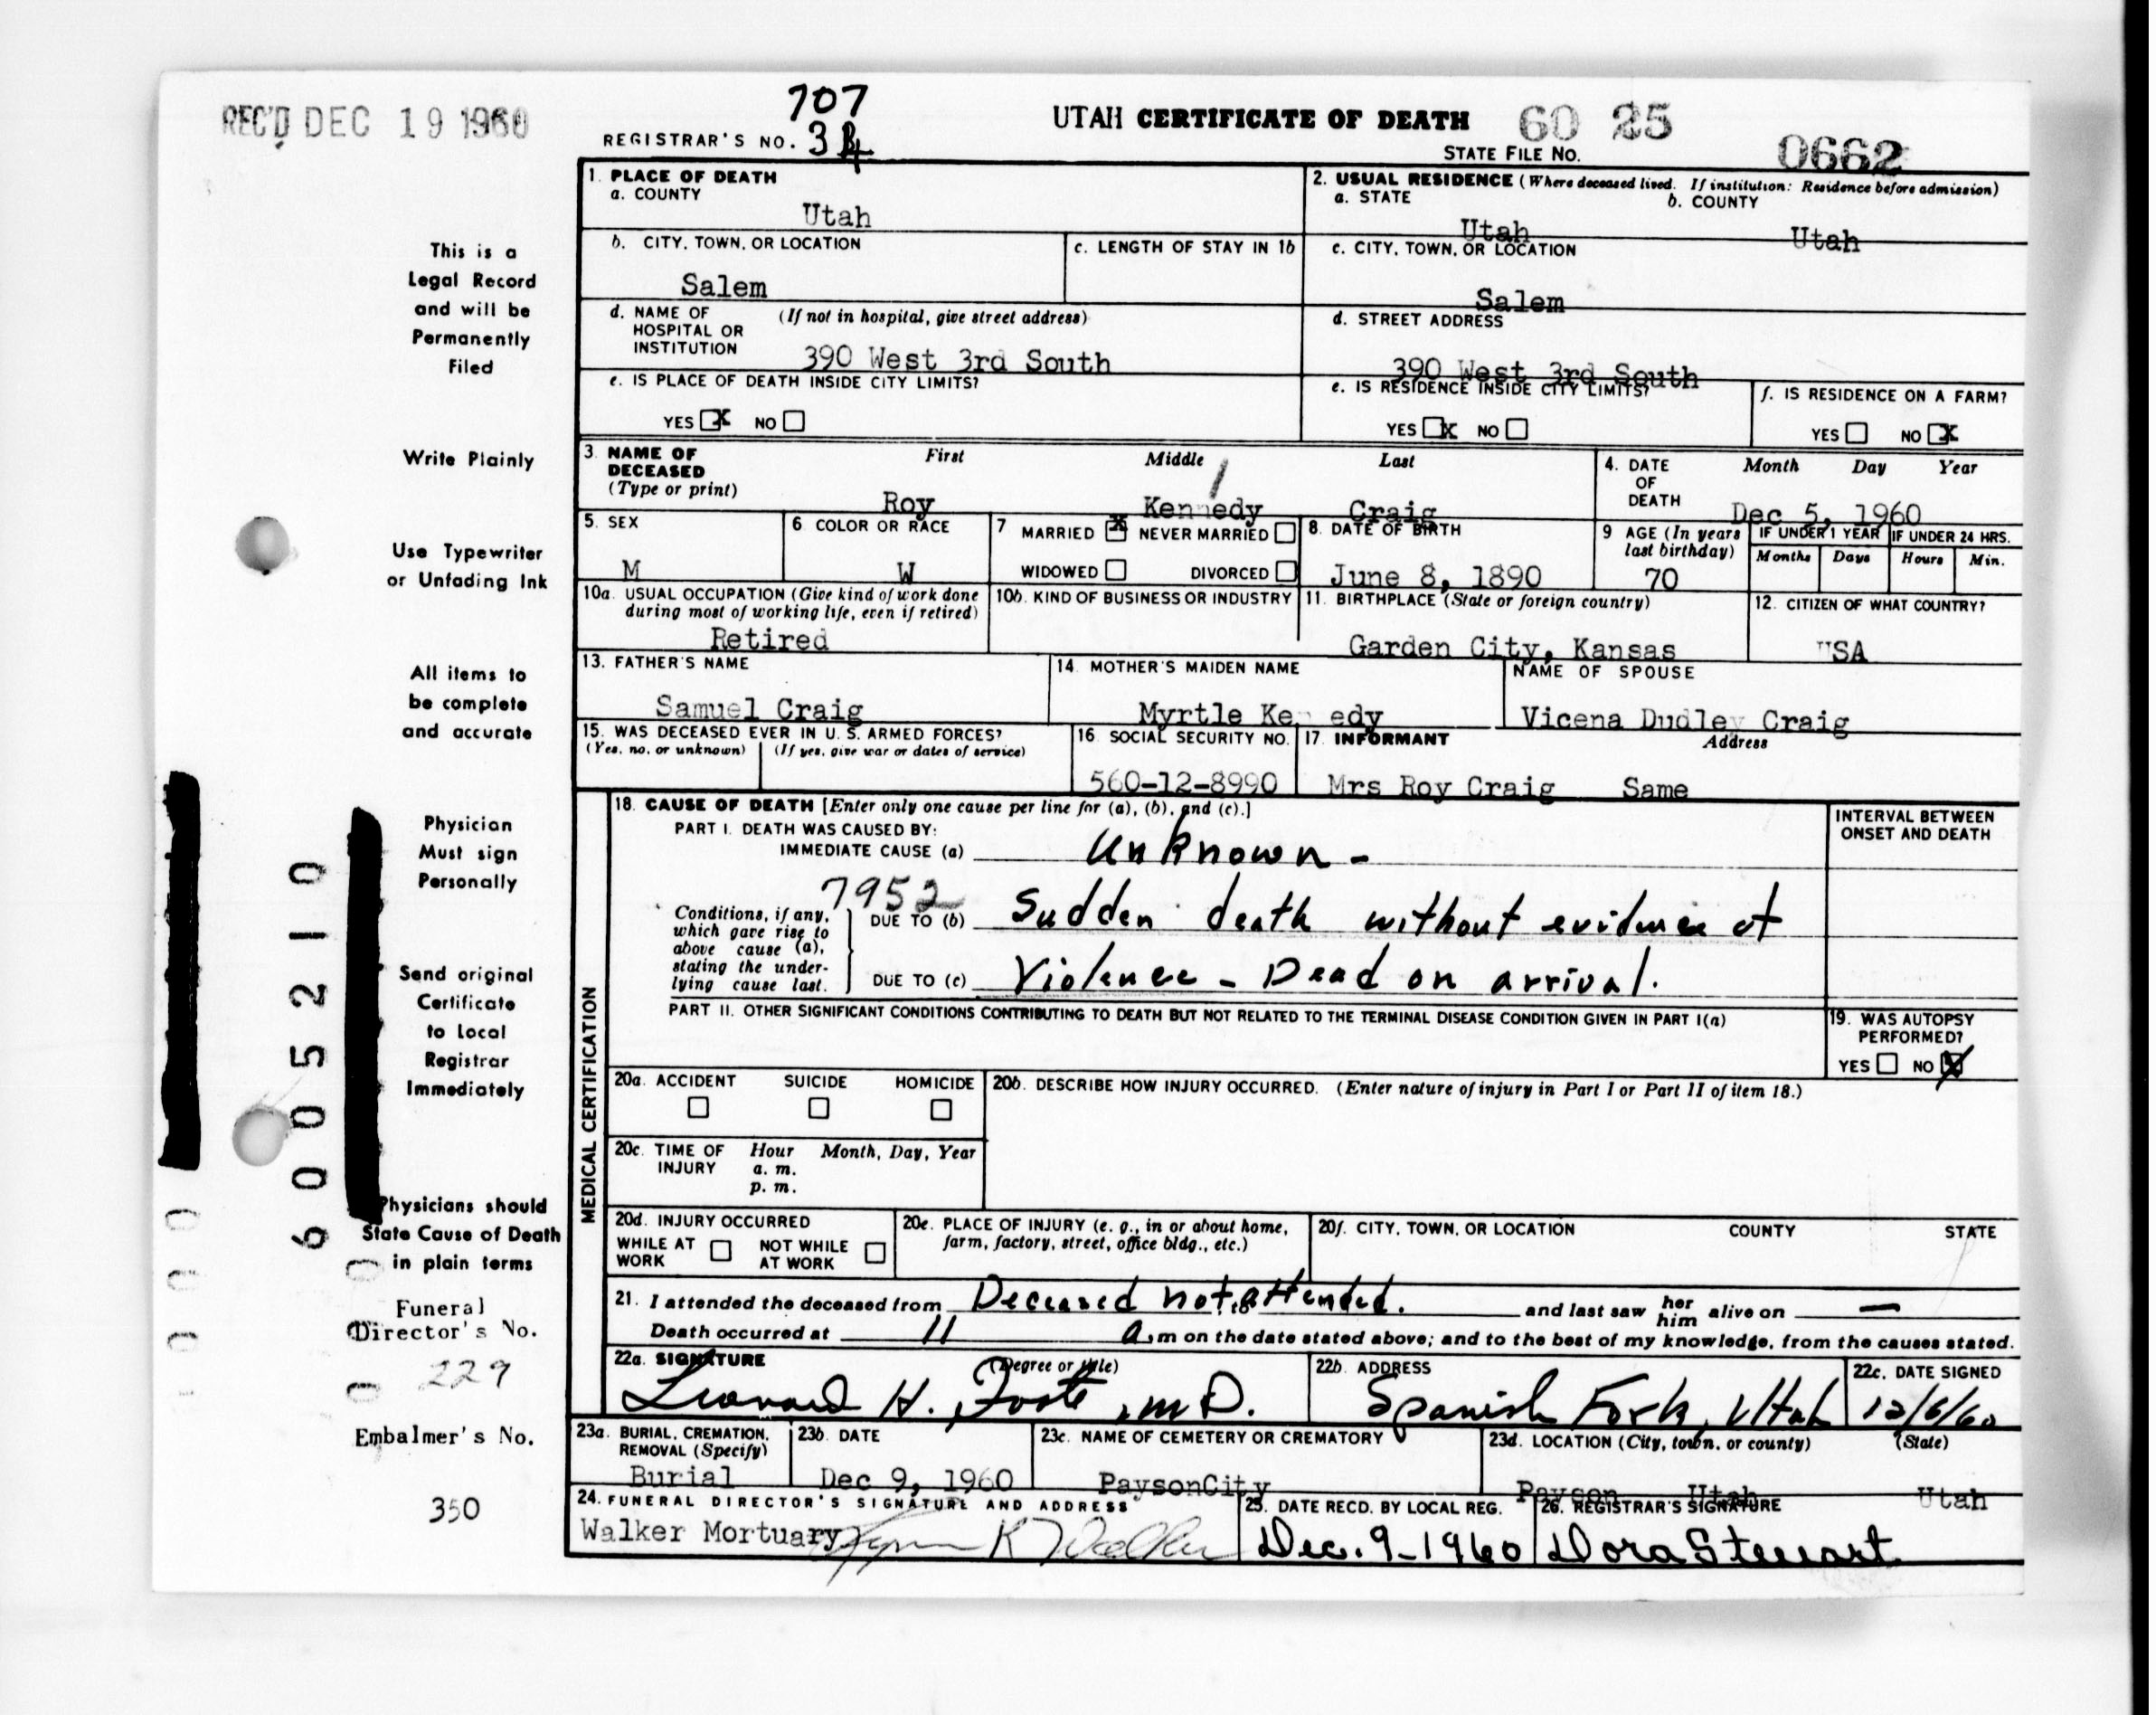 REC'D DEC 19 1960
707
REGISTRAR'S NO. 34
UTAH CERTIFICATE OF DEATH 60 25
STATE FILE NO. 0662
This is a
Legal Record
and will be
Permanently
Filed
Write Plainly
Use Typewriter
or Unfading Ink
All items to
be complete
and accurate
Physician
Must sign
Personally
Send original
Certificate
to Local
Registrar
Immediately
Physicians should
State Cause of Death
in plain terms
Funeral
Director's No.
229
Embalmer's No.
350
6005210
1. PLACE OF DEATH
a. COUNTY
Utah
b. CITY, TOWN, OR LOCATION
Salem
c. LENGTH OF STAY IN 1b
d. NAME OF HOSPITAL OR INSTITUTION (If not in hospital, give street address)
390 West 3rd South
e. IS PLACE OF DEATH INSIDE CITY LIMITS?
YES X NO
2. USUAL RESIDENCE (Where deceased lived. If institution: Residence before admission)
a. STATE b. COUNTY
Utah Utah
c. CITY, TOWN, OR LOCATION
Salem
d. STREET ADDRESS
390 West 3rd South
e. IS RESIDENCE INSIDE CITY LIMITS?
YES X NO
f. IS RESIDENCE ON A FARM?
YES NO X
3. NAME OF DECEASED (Type or print) First Middle Last
Roy Kennedy Craig
4. DATE OF DEATH Month Day Year
Dec 5, 1960
5. SEX
M
6. COLOR OR RACE
W
7 MARRIED X NEVER MARRIED
WIDOWED DIVORCED
8. DATE OF BIRTH
June 8, 1890
9 AGE (In years last birthday)
70
IF UNDER 1 YEAR IF UNDER 24 HRS.
Months Days Hours Min.
10a. USUAL OCCUPATION (Give kind of work done during most of working life, even if retired)
Retired
10b. KIND OF BUSINESS OR INDUSTRY
11. BIRTHPLACE (State or foreign country)
Garden City, Kansas
12. CITIZEN OF WHAT COUNTRY?
USA
13. FATHER'S NAME
Samuel Craig
14. MOTHER'S MAIDEN NAME
Myrtle Kennedy
NAME OF SPOUSE
Vicena Dudley Craig
15. WAS DECEASED EVER IN U. S. ARMED FORCES?
(Yes, no, or unknown) (If yes, give war or dates of service)
16. SOCIAL SECURITY NO.
560-12-8990
17. INFORMANT Address
Mrs Roy Craig Same
MEDICAL CERTIFICATION
18. CAUSE OF DEATH [Enter only one cause per line for (a), (b), and (c).]
PART I. DEATH WAS CAUSED BY:
IMMEDIATE CAUSE (a) Unknown -
INTERVAL BETWEEN ONSET AND DEATH
7952
Conditions, if any, which gave rise to above cause (a), stating the underlying cause last.
DUE TO (b) Sudden death without evidence of
DUE TO (c) Violence - Dead on arrival.
PART II. OTHER SIGNIFICANT CONDITIONS CONTRIBUTING TO DEATH BUT NOT RELATED TO THE TERMINAL DISEASE CONDITION GIVEN IN PART I(a)
19. WAS AUTOPSY PERFORMED?
YES NO X
20a. ACCIDENT SUICIDE HOMICIDE
20b. DESCRIBE HOW INJURY OCCURRED. (Enter nature of injury in Part I or Part II of item 18.)
20c. TIME OF INJURY Hour Month, Day, Year
a. m.
p. m.
20d. INJURY OCCURRED
WHILE AT WORK NOT WHILE AT WORK
20e. PLACE OF INJURY (e. g., in or about home, farm, factory, street, office bldg., etc.)
20f. CITY, TOWN, OR LOCATION COUNTY STATE
21. I attended the deceased from Deceased not attended. and last saw her him alive on —
Death occurred at 11 a.m on the date stated above; and to the best of my knowledge, from the causes stated.
22a. SIGNATURE (Degree or title)
Leonard H. Foote, M.D.
22b. ADDRESS
Spanish Fork, Utah
22c. DATE SIGNED
12/6/60
23a. BURIAL, CREMATION, REMOVAL (Specify)
Burial
23b. DATE
Dec 9, 1960
23c. NAME OF CEMETERY OR CREMATORY
PaysonCity
23d. LOCATION (City, town, or county) (State)
Payson Utah Utah
24. FUNERAL DIRECTOR'S SIGNATURE AND ADDRESS
Walker Mortuary K Walker
25. DATE RECD. BY LOCAL REG.
Dec. 9-1960
26. REGISTRAR'S SIGNATURE
Dora Stewart